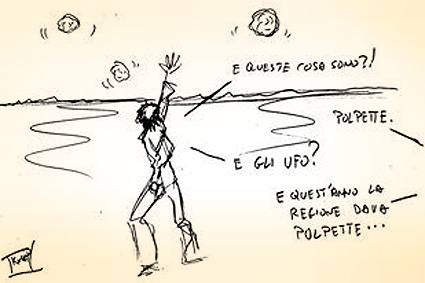 E QUESTE COSA SONO?!
POLPETTE.
E GLI UFO?
E QUEST'ANNO LA
REGIONE DAVA
POLPETTE...